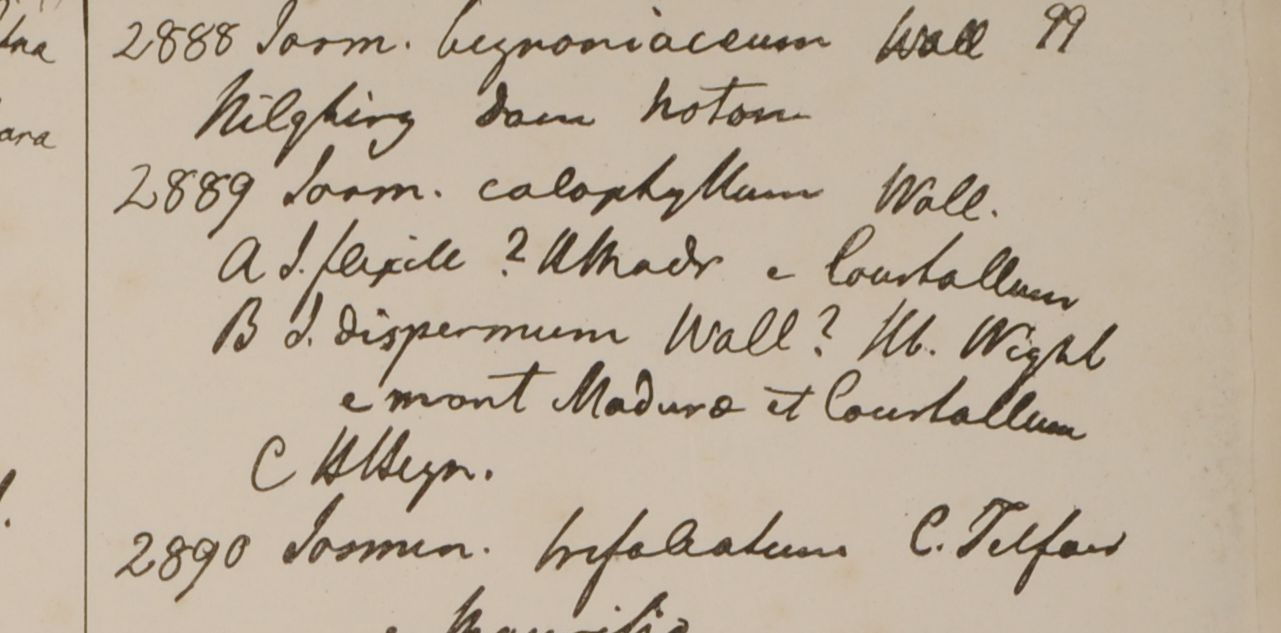 tna
2888 Jasm. bignoniaceum Wall 99
Nilghiry dom Noton
ara
2889 Jasm. calophyllum Wall.
A J. flexile ? HMadr e Courtallum
B J. dispermum Wall? Hb. Wight
e mont Madura et Courtallum
C HHeyn.
2890 Jasmin. trifoliatum C. Telfair
e Mauritio